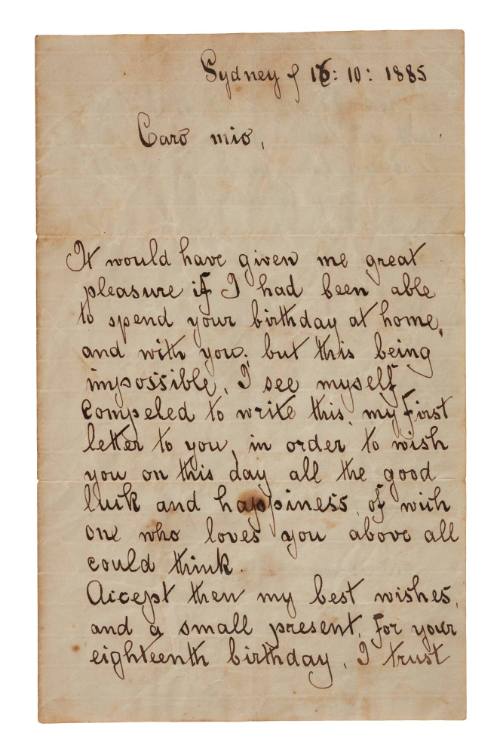 Sydney 16: 10: 1885
Caro mio,
It would have given me great
pleasure if I had been able
to spend your birthday at home,
and with you; but this being
impossible, I see myself
compeled to write this, my first
letter to you, in order to wish
you on this day all the good
luck and happiness, of wich
one who loves you above all
could think.
Accept then my best wishes,
and a small present, for your
eighteenth birthday. I trust